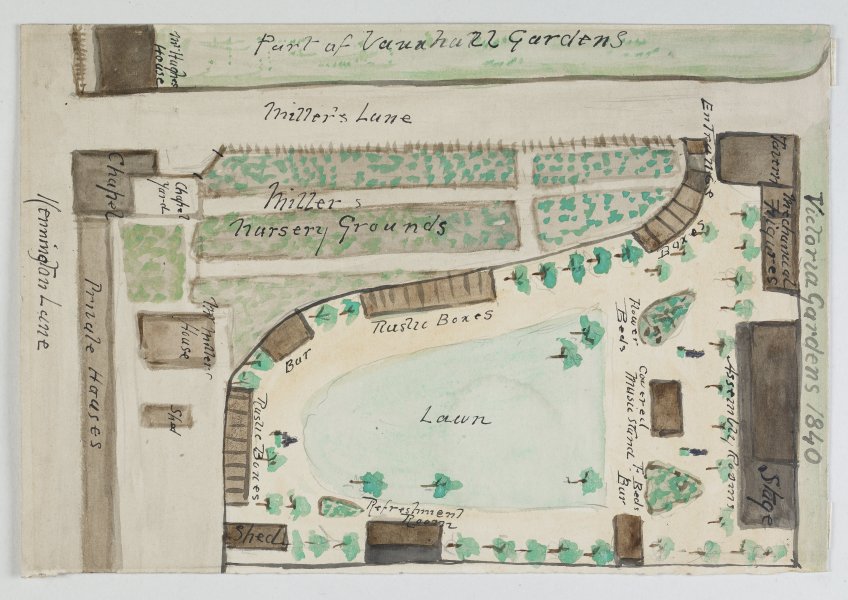 Part of Vauxhall Gardens
Mr Hughes
House
Miller's Lane
Entrance
Tavern
Mechanical
Figures
Victoria Gardens 1840
Chapel
Chapel
Yard
Miller's
Nursery Grounds
Boxes
Kennington Lane
Private Houses
Mr Millers
House
Shed
Bar
Rustic Boxes
Flower
Beds
Covered
Music Stand
F. Beds
Bar
Assembly Rooms
Stage
Lawn
Rustic Boxes
Refreshment
Room
Shed